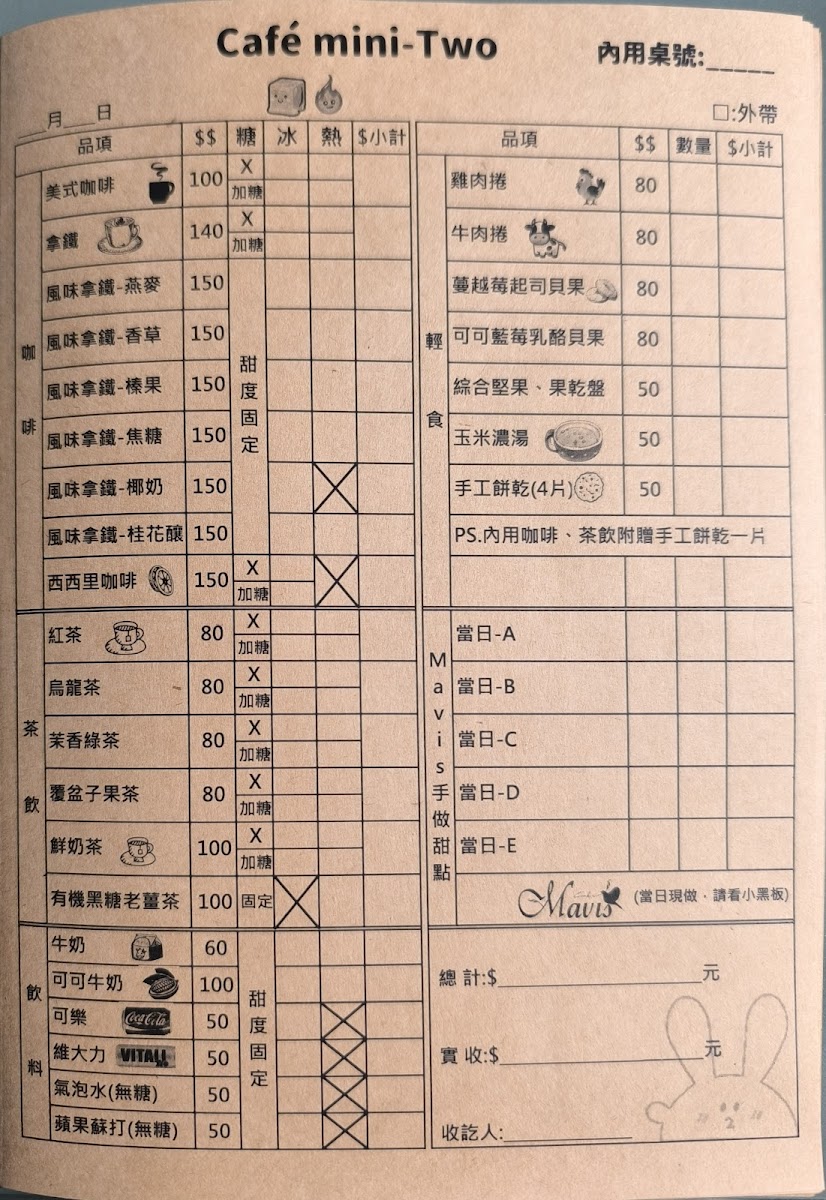 Café mini-Two
內用桌號:_____
__月__日
□:外帶
品項 $$ 糖 冰 熱 $小計
咖啡
美式咖啡 100 X 加糖
拿鐵 140 X 加糖
風味拿鐵-燕麥 150
風味拿鐵-香草 150
風味拿鐵-榛果 150
風味拿鐵-焦糖 150
風味拿鐵-椰奶 150
風味拿鐵-桂花釀 150
甜度固定
西西里咖啡 150 X 加糖
茶飲
紅茶 80 X 加糖
烏龍茶 80 X 加糖
茉香綠茶 80 X 加糖
覆盆子果茶 80 X 加糖
鮮奶茶 100 X 加糖
有機黑糖老薑茶 100 固定
飲料
牛奶 60
可可牛奶 100
可樂 Coca-Cola 50
維大力 VITALI 50
氣泡水(無糖) 50
蘋果蘇打(無糖) 50
甜度固定
品項 $$ 數量 $小計
輕食
雞肉捲 80
牛肉捲 80
蔓越莓起司貝果 80
可可藍莓乳酪貝果 80
綜合堅果、果乾盤 50
玉米濃湯 50
手工餅乾(4片) 50
PS.內用咖啡、茶飲附贈手工餅乾一片
Mavis手做甜點
當日-A
當日-B
當日-C
當日-D
當日-E
Mavis (當日現做、請看小黑板)
總 計:$__________元
實 收:$__________元
收訖人:__________